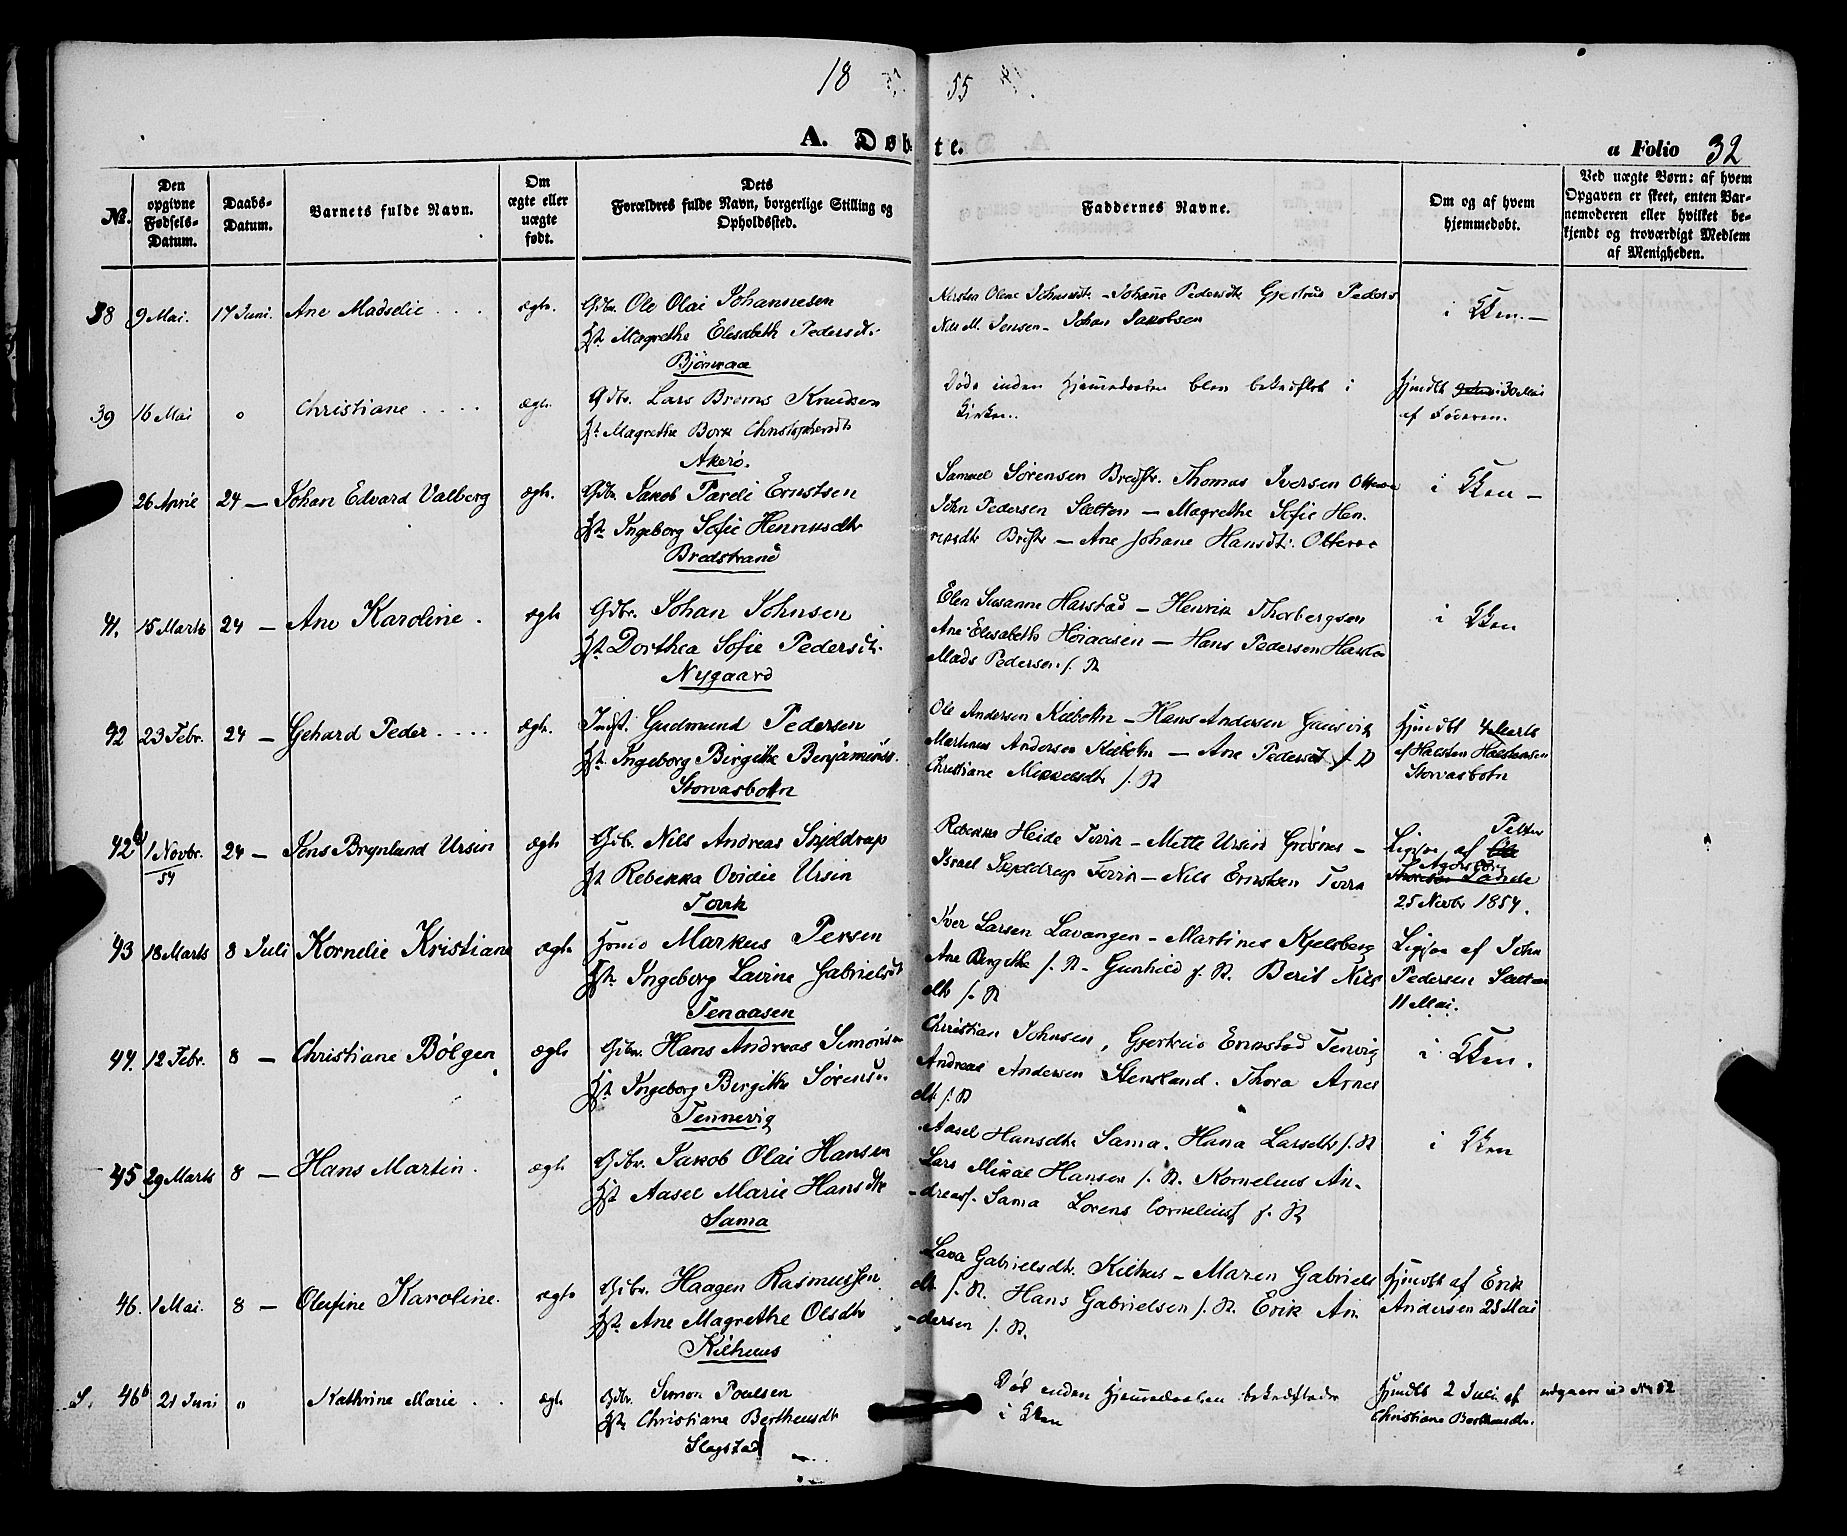 18 55
A. Døbte.
a Folio 32
No.
Den opgivne Fødsels-Datum.
Daabs-Datum.
Barnets fulde Navn.
Om ægte eller uægte født.
Dets Forældres fulde Navn, borgerlige Stilling og Opholdssted.
Faddernes Navne.
Om og af hvem hjemmedøbt.
Ved uægte Børn: af hvem Opgaven er skeet, enten Barnemoderen eller hvilket bekjendt og troværdigt Medlem af Menigheden.
38 9 Mai. 17 Juni. Ane Madselie .... ægte. Gdbr. Ole Olai Johannesen
Hst Magrethe Elisabeth Pedersdt.
Bjørnraa
Kirsten Olene Johnsdt. - Johañe Pedersdt Gjertrud Peders
Nils M. Jensen - Johan Jakobsen
i Kken. -
39 16 Mai o Christiane .... ægte. Gdbr. Lars Broms Knudsen
Hst Magrethe Bork Christophersdt
Akerø.
Døde inden Hjemmedaaben blev bekræftet i
Kirken.
Hjmdbt 30 Mai
af Faderen.
26 April 24 - Johan Edvard Valberg ægte. Gdbr Jakob Pareli Ernstsen
Hst Ingeborg Sofie Henriksdtr
Bredstrand
Samuel Sørensen Bredstr. Thomas Iversen Otteraa
John Pedersen Sætten - Magrethe Sofie Hen-
riksdtr Bredstr - Ane Johane Hansdt. Otteraa
i Kken -
41. 15 Marts 24 - Ane Karoline . ægte Gdbr. Johan Johnsen
Hst Dorthea Sofie Pedersdt.
Nygaard
Elen Susanne Harstad - Henrik Thorbergsen
Ane Elisabeth Hoiaasen - Hans Pedersen Harsta
Mads Pedersen f. St
i Kken
42 23 Febr. 24 - Gehard Peder .... ægte. Indst. Gudmund Pedersen
Hst. Ingeborg Birgithe Benjaminsd.
Storvasbotn
Ole Andersen Kilbotn - Hans Andersen Gausvik
Martinus Andersen Kilbotn - Ane Pedersdt f. St
Christiane Mikkelsdtr f. St
Hjmdbt 4 Marts
af Halsten Halstensen
Storvasbotn
42b 1 Novbr. 54 24 - Jens Brynlund Ursin ægte Gdbr. Nils Andreas Skjeldrup
Hst Rebekka Ovidie Ursin
Torrk
Rebekka Heide Torrk - Mette Ursin Grøsnes -
Israel Skjeldrup Torrk - Nils Erikstsen Torrk
Ligesaa af Petter
25 Novbr 1854.
43 18 Marts 8 Juli Kornelie Kristiane ægte Hmd Markus Persen
Hst. Ingeborg Lavine Gabrielsdt
Tenaasen
Iver Larsen Lavangen - Martines Kjelsberg
Ane Bergithe f. St. Gunhild f. St. Berit Nils
dtr f. St
Ligesaa af John
Pedersen Sætten
11 Mai.
44. 12 Febr. 8 - Christiane Bølgen ægte Gdbr. Hans Andreas Simonsen
Hst Ingeborg Birgithe Sørensd.
Tennevig
Christian Johnsen, Gjertrud Erikstad Tenvig
Andreas Andersen Stensland. Thora Arnes
dt f. St
i Kken.
45 29 Marts 8 - Hans Martin . ægte Gdbr. Jakob Olai Hansen
Hst Aasel Marie Hansdtr
Sama
Aasel Hansdtr Sama. Hana Larsdtr f. St
Lars Mikal Hansen f. St. Kornelius An-
dreass. Sama Lorens Corneliuss f. St
i Kken
46. 1 Mai. 8 - Olufine Karoline. ægte Gdbr. Haagen Rasmussen.
Hst. Ane Magrethe Olsdtr
Kilhuus
Lava Gabrielsdt. Kilhus - Maren Gabriels
dt f. St. Hans Gabrielsen f. St. Erik An
-dersen f. St.
Hjmdbt af Erik
Andersen 28 Mai
S. 46b 21 Juni " Kathrine Marie . . ægte Gdbr. Simon Poulsen
Hst Christiane Berthensdt
Slagstad
Død inden Hjemmedaaben bekræftedes
i Kken
Hjmdbt 2 Juli af
Christiane Berthensdtr.
udgaaer ved No 52